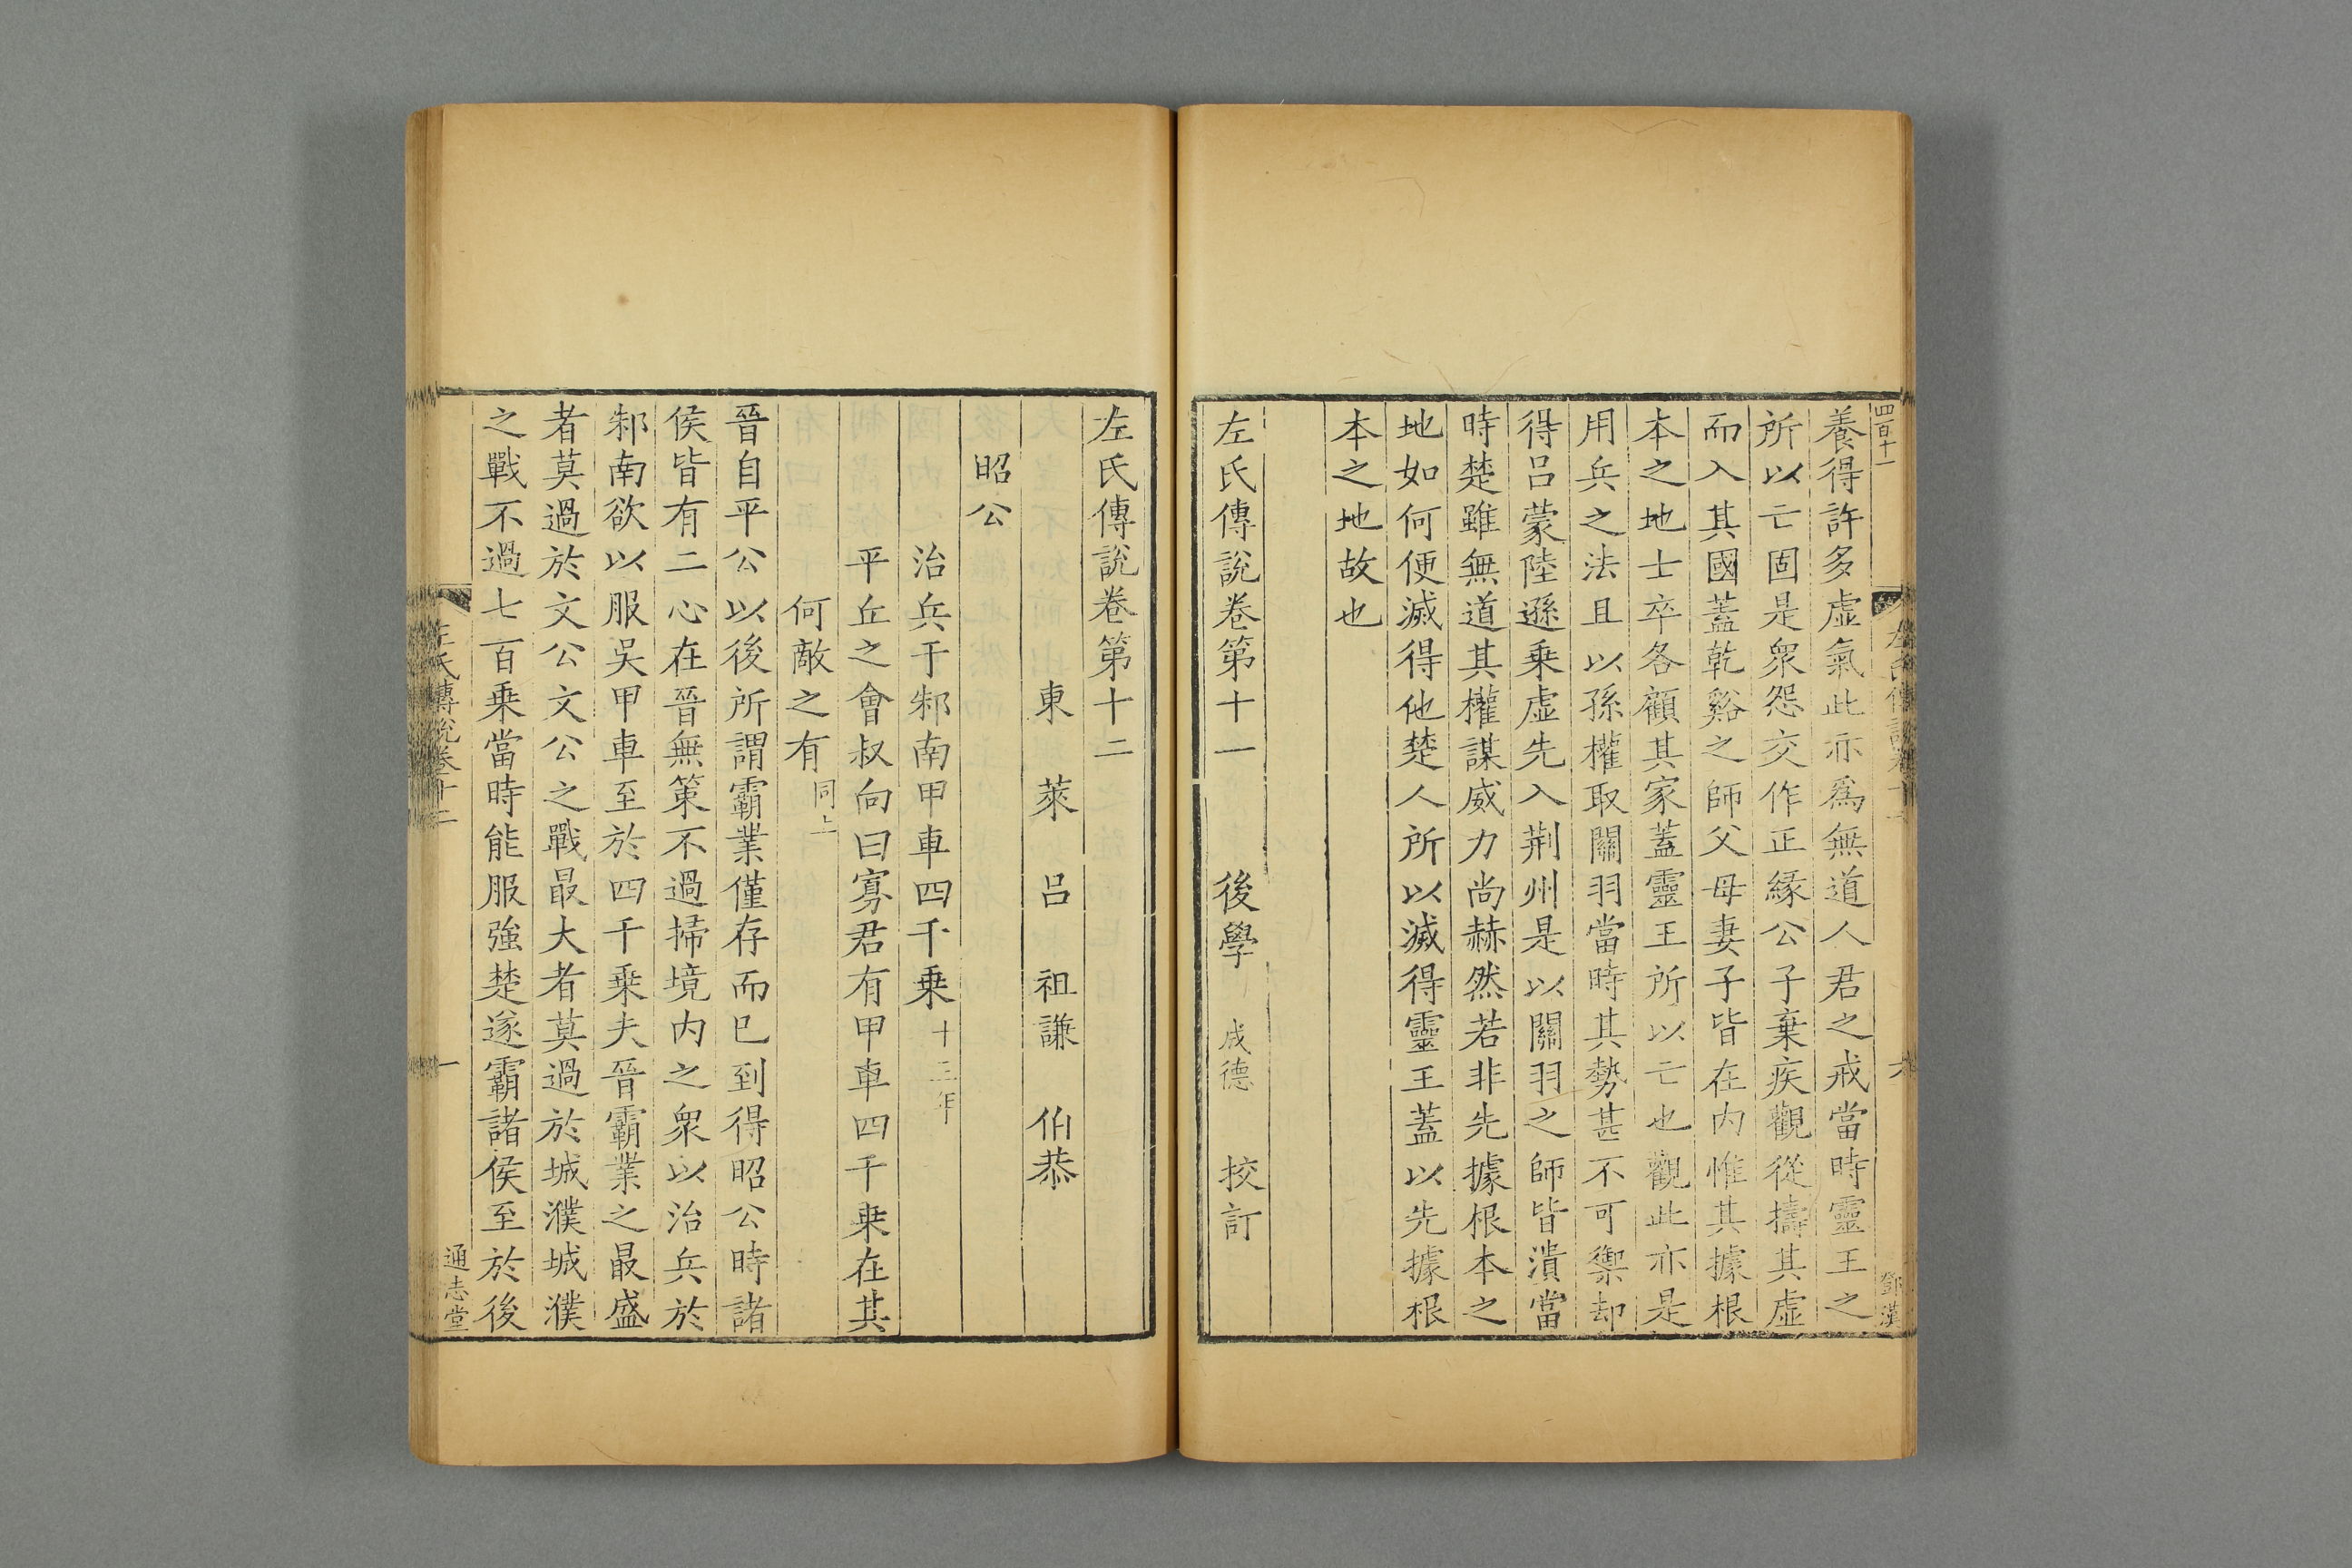 四百十一
鄧漢
養得許多虛氣此亦爲無道人君之戒當時靈王之
所以亡固是衆怨交作正緣公子棄疾觀從擣其虛
而入其國蓋乾谿之師父母妻子皆在内惟其據根
本之地士卒各顧其家蓋靈王所以亡也觀此亦是
用兵之法且以孫權取關羽當時其勢甚不可禦却
得吕蒙陸遜乗虛先入荆州是以關羽之師皆潰當
時楚雖無道其權謀威力尚赫然若非先據根本之
地如何便滅得他楚人所以滅得靈王蓋以先據根
本之地故也
左氏傳說卷第十一 後學 成德 挍訂
左氏傳說卷第十二
東萊吕祖謙伯恭
昭公
治兵于邾南甲車四千乗十三年
平丘之會叔向曰寡君有甲車四千乗在其
何敵之有同上
晉自平公以後所謂霸業僅存而已到得昭公時諸
侯皆有二心在晉無策不過掃境内之衆以治兵於
邾南欲以服吳甲車至於四千乗夫晉霸業之最盛
者莫過於文公文公之戰最大者莫過於城濮城濮
之戰不過七百乗當時能服強楚遂霸諸侯至於後
左氏傳說卷十二
一
通志堂